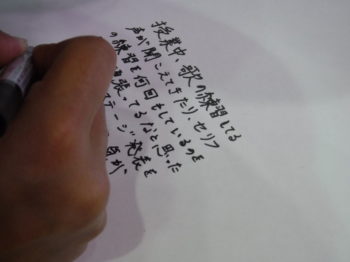 授業中、歌の練習してる
声が聞こえてきたり、セリフ
の練習を何回もしているのを
張ってるなと思った
ステージ発表を